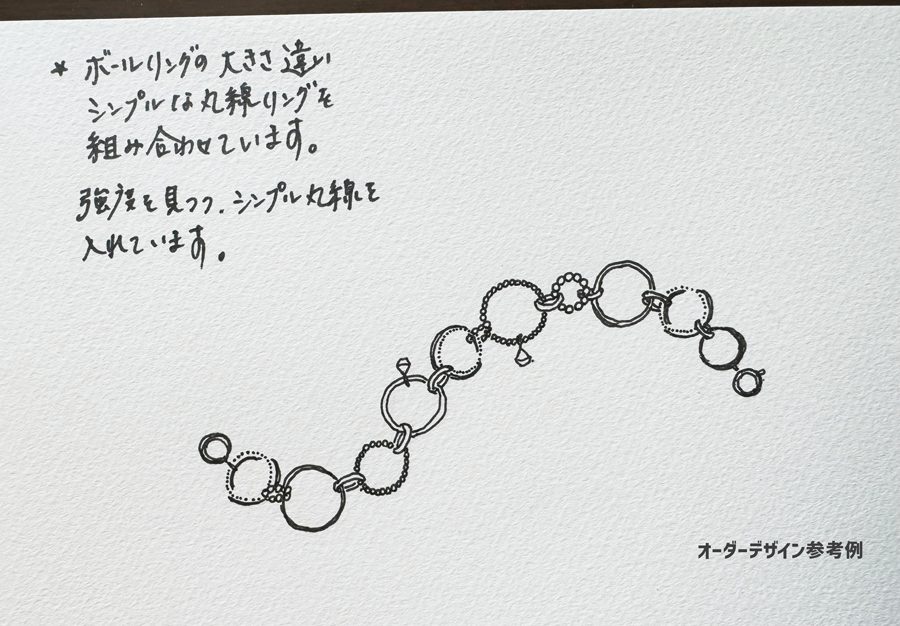 * ボールリングの大きさ違い
シンプルな丸線リングを
組み合わせています。
強度を見つつ、シンプル丸線を
入れています。
オーダーデザイン参考例